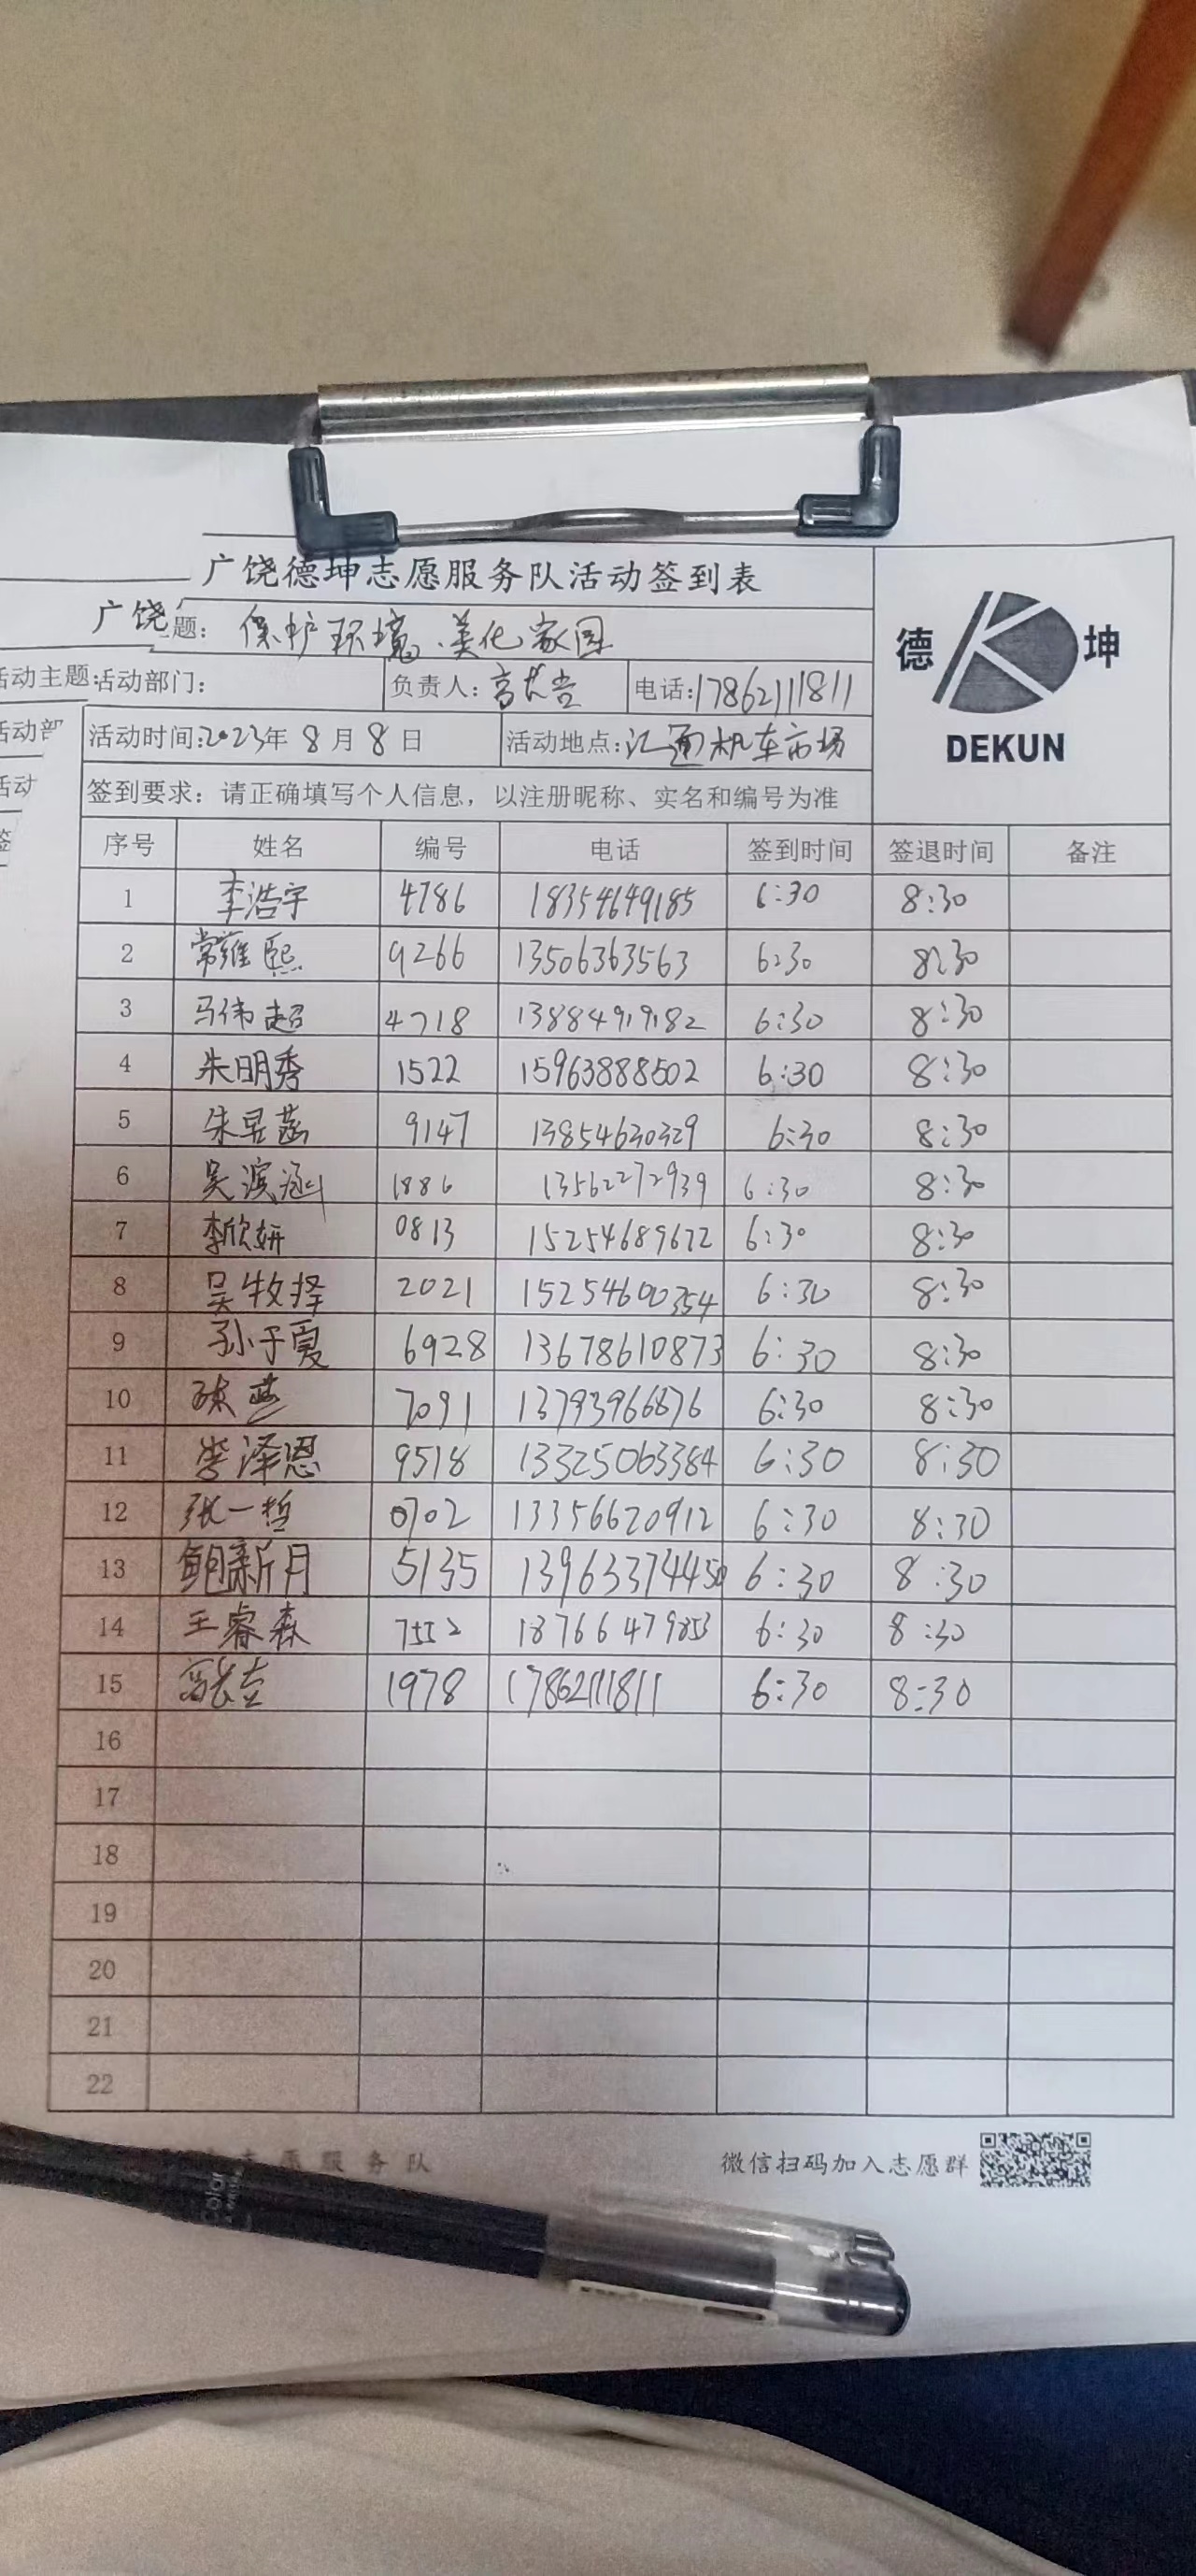 广饶德坤志愿服务队活动签到表
广饶
题: 保护环境、美化家园
德 坤
活动主题:活动部门: 负责人: 电话:17862111811
活动部
活动时间:2023年 8 月 8 日 活动地点: 通机车市场
DEKUN
活动
签到要求：请正确填写个人信息，以注册昵称、实名和编号为准
签
序号 姓名 编号 电话 签到时间 签退时间 备注
1 李浩宇 4786 18354649185 6:30 8:30
2 常雅熙 9266 13506363563 6:30 8:30
3 马伟超 4718 13884919182 6:30 8:30
4 朱明秀 1522 15963888502 6:30 8:30
5 朱昱菡 9147 13854630329 6:30 8:30
6 吴滨涵 1886 13562272939 6:30 8:30
7 李欣妍 0813 15254689672 6:30 8:30
8 吴牧择 2021 15254600354 6:30 8:30
9 孙子夏 6928 13678610873 6:30 8:30
10 7091 13793966876 6:30 8:30
11 李泽恩 9518 13325063384 6:30 8:30
12 张一哲 0702 13356620912 6:30 8:30
13 鲍新月 5135 13963374450 6:30 8:30
14 王睿森 7552 18766479853 6:30 8:30
15 1978 17862111811 6:30 8:30
16
17
18
19
20
21
22
志愿服务队 微信扫码加入志愿群
Color